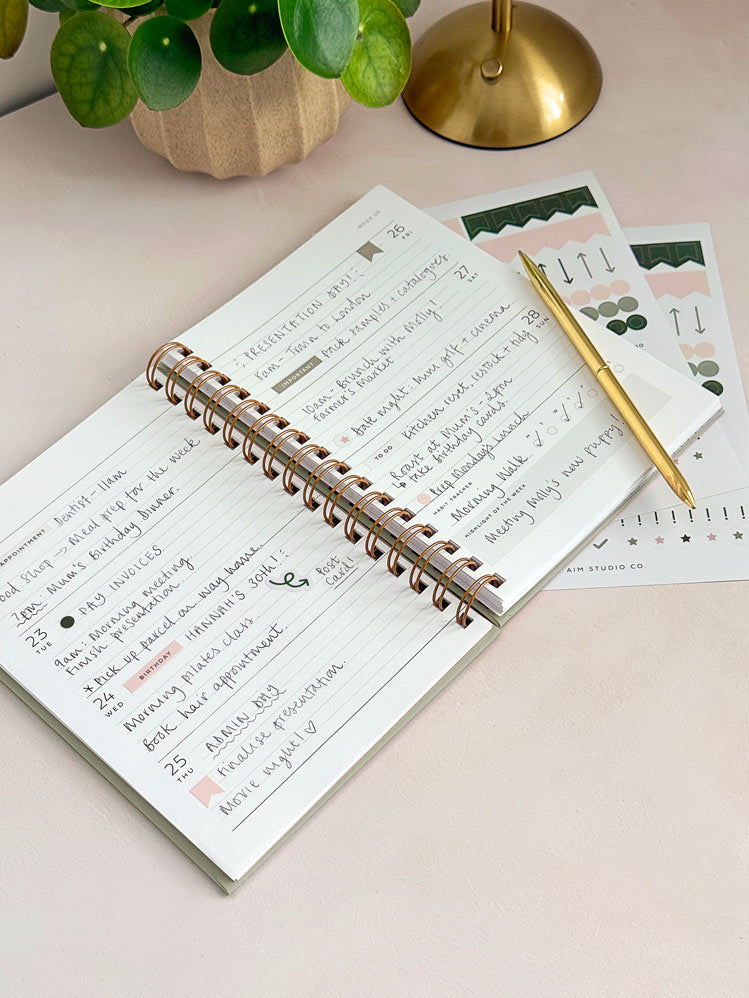 APPOINTMENT
Dentist - 11am
ood shop → Meal prep for the week
7pm: Mum's Birthday Dinner.
23
TUE
PAY INVOICES
9am: Morning meeting
Finish presentation.
* Pick up parcel on way home.
24
WED
BIRTHDAY
HANNAH'S 30th!
Post
Card!
Morning pilates class
Book hair appointment.
25
THU
ADMIN DAY
Finalise presentation.
Movie night! ♡
WEEK 08
26
FRI
PRESENTATION DAY!
8am - Train to London
IMPORTANT
Pack samples + catalogues.
27
SAT
10am - Brunch with Molly!
Farmer's Market
Date night: Mini golf + cinema.
28
SUN
TO DO
Kitchen reset, restock + tidy
Roast at Mum's, 2pm
↳ take birthday cards.
Prep Monday's lunch
HABIT TRACKER
Morning Walk
HIGHLIGHT OF THE WEEK
Meeting Molly's new puppy!
AIM STUDIO CO.